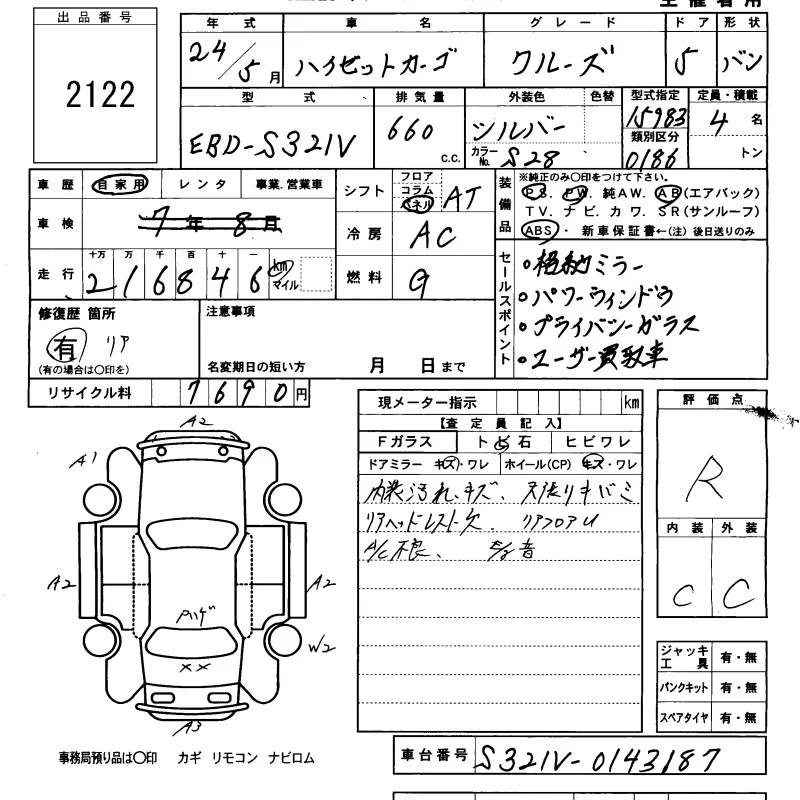 出品番号
2122
年 式 車 名 グレード ドア 形状
24/5月 ハイゼットカーゴ クルーズ 5 バン
型 式 排気量 外装色 色替 型式指定 定員・積載
EBD-S321V 660 c.c. シルバー 15983 4名
カラーNo. S28 類別区分 0186 トン
車歴 自家用 レンタ 事業.営業車
シフト フロア コラム パネル AT
車検 7年8月
冷房 AC
走行 十万 万 千 百 十 一 km マイル
216846
燃料 G
装備品 ※純正のみ〇印をつけて下さい。
PS. PW. 純AW. AB(エアバック)
TV. ナビ. カワ. SR(サンルーフ)
ABS・ 新車保証書←(注) 後日送りのみ
セールスポイント
・格納ミラー
・パワーウィンドウ
・プライバシーガラス
・ユーザー買取車
修復歴 箇所
有 リア
(有の場合は〇印を)
注意事項
名変期日の短い方 月 日まで
リサイクル料 7690円
現メーター指示 km
【査定員記入】
Fガラス トビ石 ヒビワレ
ドアミラー キズ・ワレ ホイール(CP) キズ・ワレ
内装汚れ、キズ、天張りキバミ
リアヘッドレスト欠、リアフロアU
A/C不良、 音
評価点
R
内装 外装
C C
ジャッキ工具 有・無
パンクキット 有・無
スペアタイヤ 有・無
A2
A1
A2
A2
W2
XX
A3
事務局預り品は〇印 カギ リモコン ナビロム
車台番号 S321V-0143187